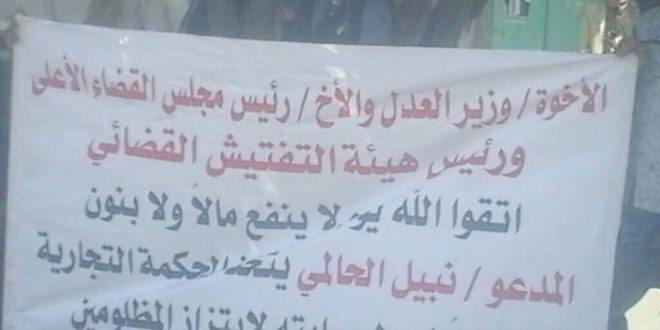 الأخوة / وزير العدل والأخ / رئيس مجلس القضاء الأعلى
ورئيس هيئة التفتيش القضائي
اتقوا الله يوم لا ينفع مالاً ولا بنون
المدعو / نبيل الحالمي يتخذ المحكمة التجارية
لابتزاز المظلومين